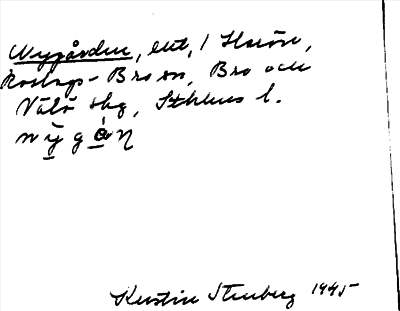 Nygården, ent, i Harön,
Roslags-Bro sn, Bro och
Vätö skg, Sthlms l.
nỳgǻn
Kerstin Stenberg 1945